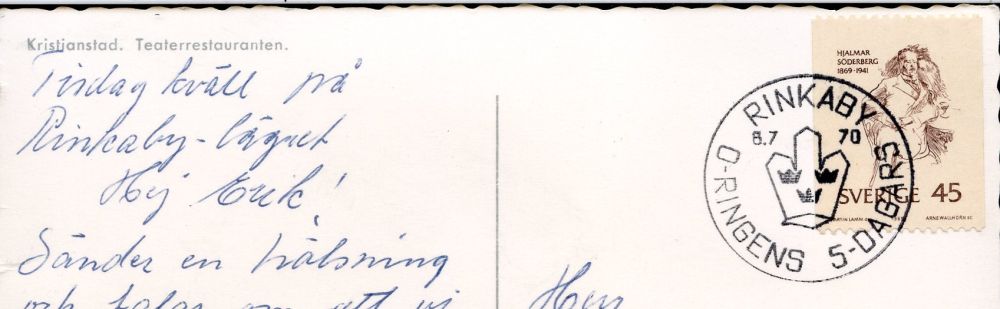 Kristianstad. Teaterrestauranten.
Tisdag kväll på
Rinkaby-lägret
Hej Erik!
Sänder en hälsning
och talar om att vi
Herr
RINKABY
8.7 70
O-RINGENS 5-DAGARS
HJALMAR
SÖDERBERG
1869-1941
SVERIGE 45
ARNE WALLHORN SC